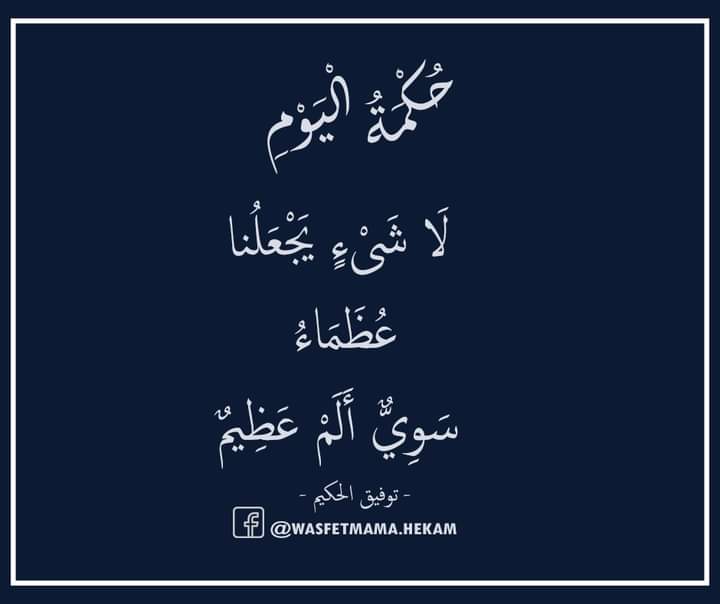 حُكْمَةُ الْيَوْمِ
لَا شَىْءٍ يَجْعَلُنا
عُظَمَاءُ
سَوِيٌّ أَلَمْ عَظِيمٌ
- توفيق الحكيم -
@WASFETMAMA.HEKAM